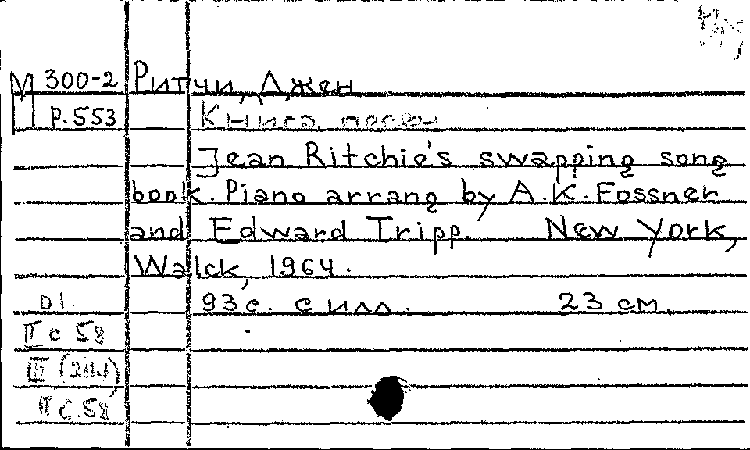 М 300-2 Ритчи, Джен
Р.553 Книга песен
Jean Ritchie's swapping song
book. Piano arrang by A.K. Fossner
and Edward Tripp. New York,
Walck, 1964.
01. 93с. с илл. 23 см
II с 58
III (2ш)
II с.58